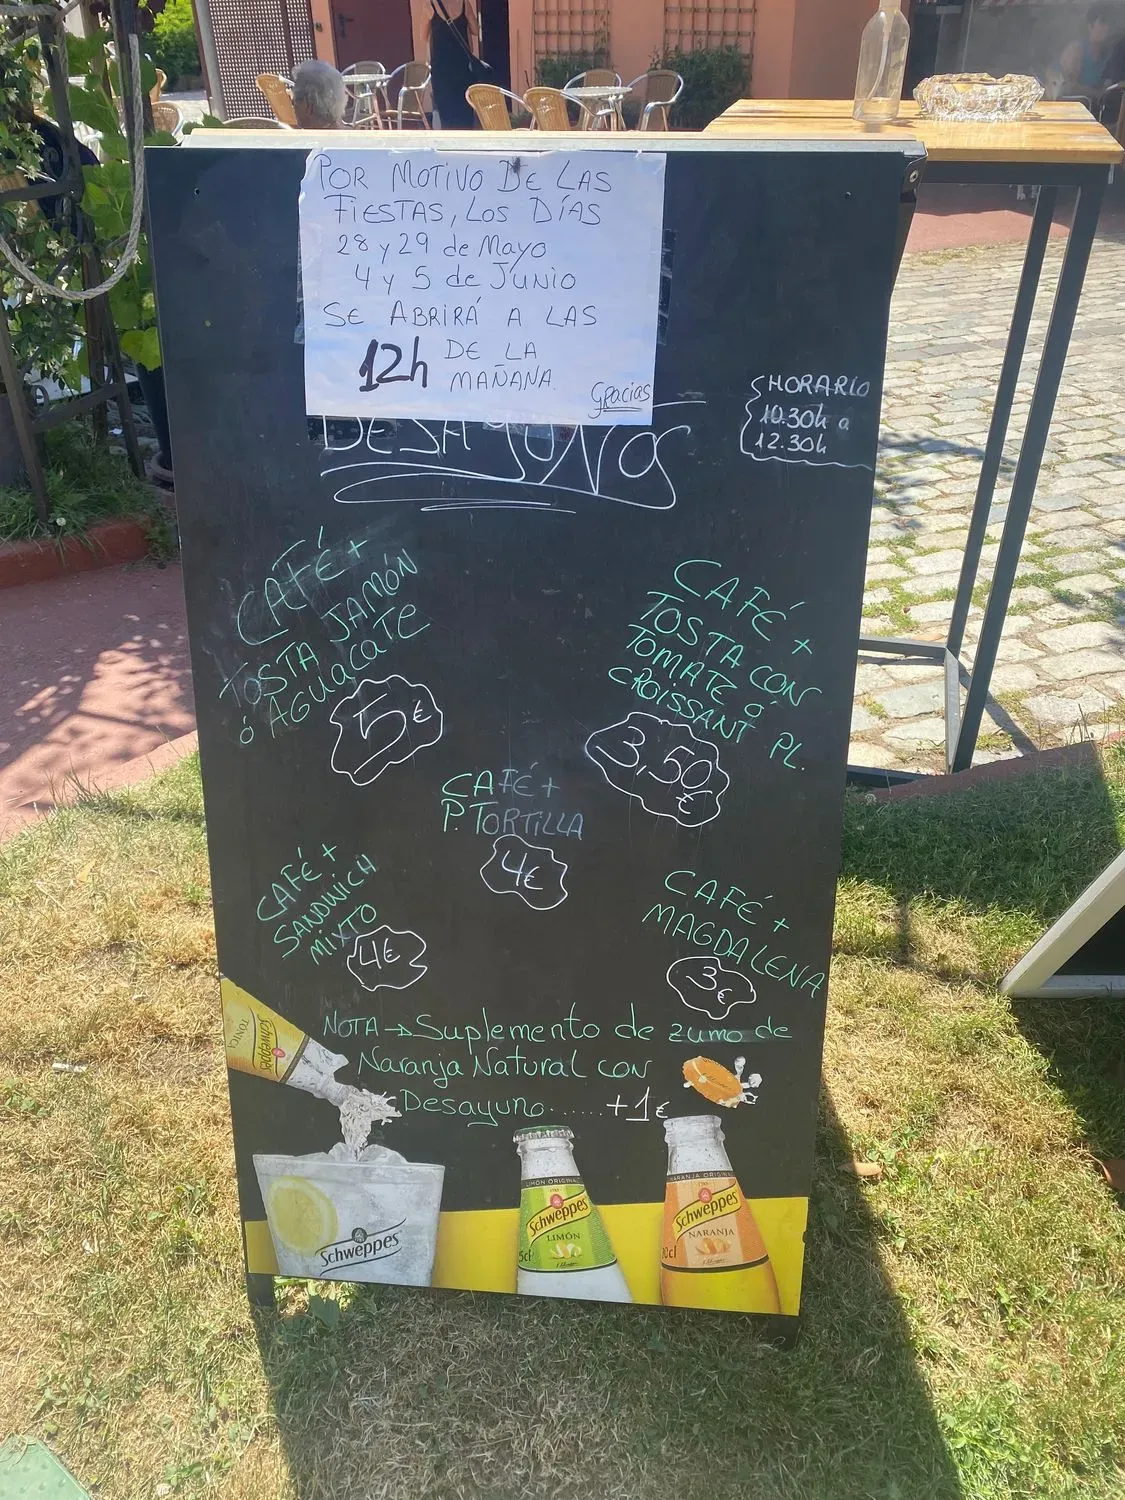 POR MOTIVO DE LAS
FIESTAS, LOS DÍAS
28 y 29 de Mayo
4 y 5 de Junio
SE ABRIRÁ A LAS
12h DE LA
MAÑANA.
Gracias
DESAYUNOS
HORARIO
10.30h a
12.30h
CAFÉ +
TOSTA JAMÓN
ó AGUACATE
5€
CAFÉ +
TOSTA CON
TOMATE o
CROISSANT PL.
3,50€
CAFÉ +
P. TORTILLA
4€
CAFÉ +
SANDWICH
MIXTO
4€
CAFÉ +
MAGDALENA
3€
NOTA → Suplemento de zumo de
Naranja Natural con
Desayuno......+1€
TONICA
Schweppes
Schweppes
LIMÓN ORIGINAL
Schweppes
LIMÓN
NARANJA ORIGINAL
Schweppes
NARANJA